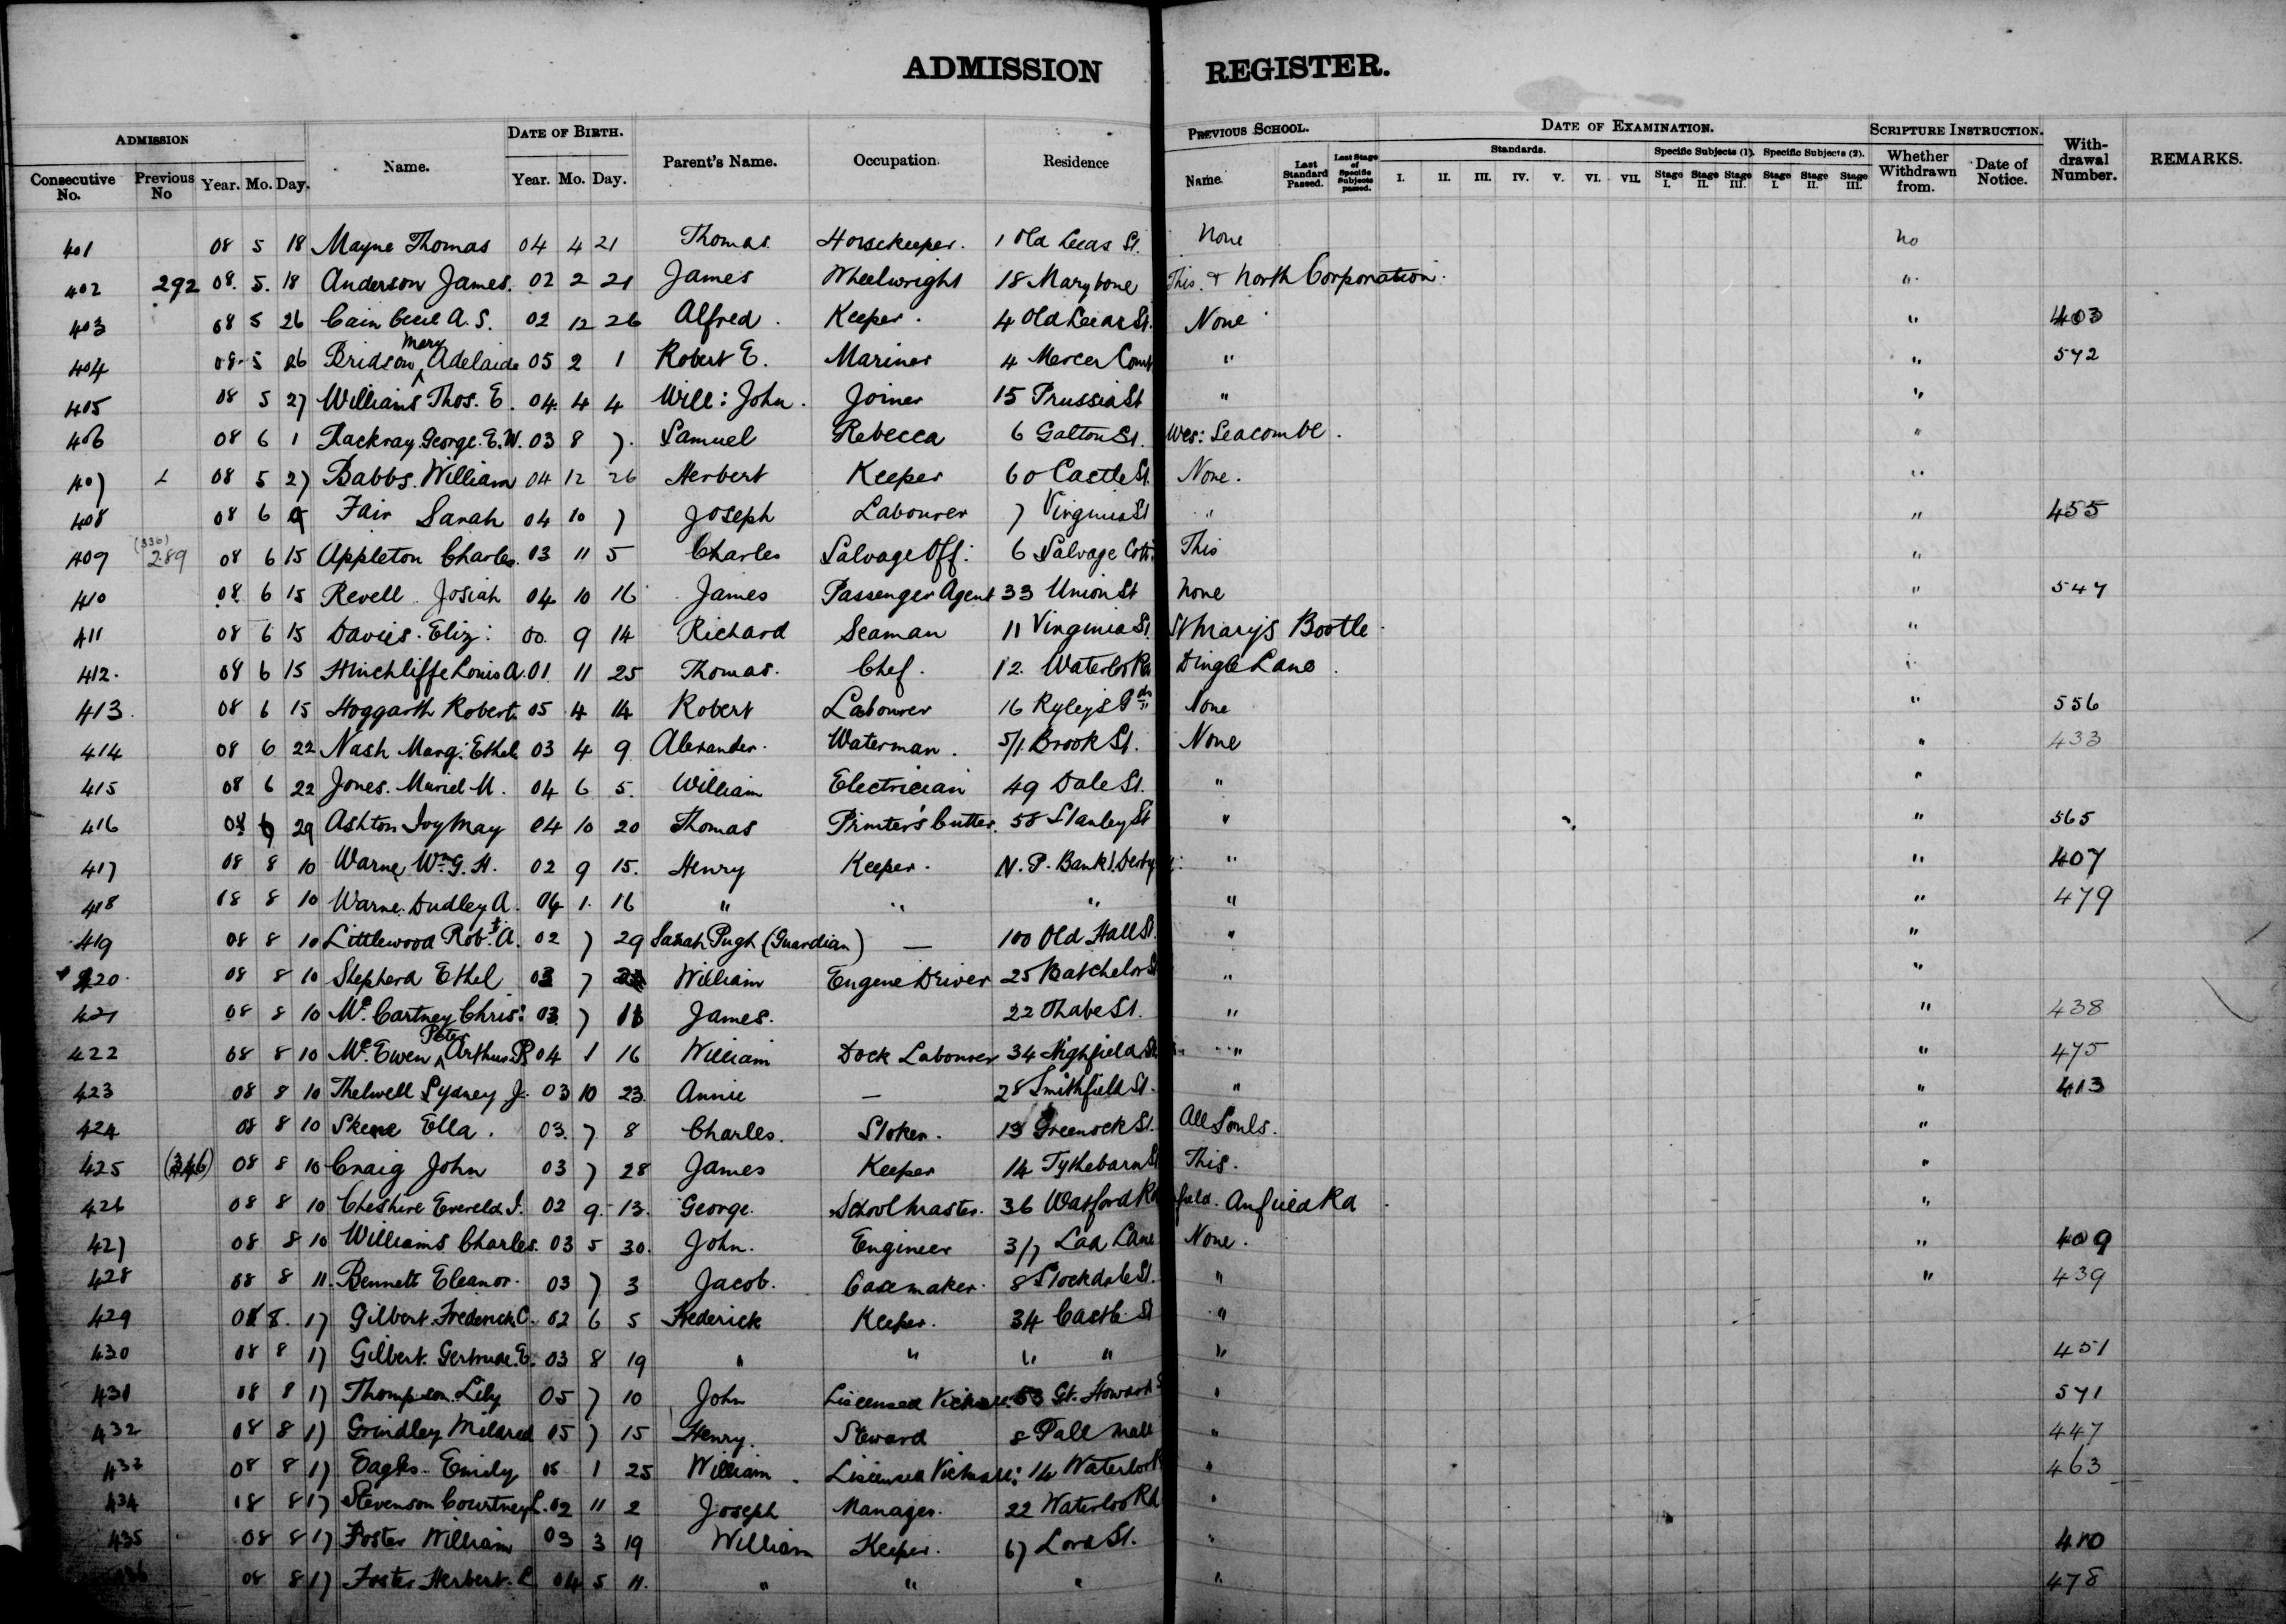 ADMISSION REGISTER.
ADMISSION DATE OF BIRTH. PREVIOUS SCHOOL. DATE OF EXAMINATION. SCRIPTURE INSTRUCTION.
Standards. Specific Subjects (1). Specific Subjects (2).
Consecutive No. Previous No Year. Mo. Day. Name. Year. Mo. Day. Parent's Name. Occupation. Residence Name. Last Standard Passed. Last Stage of Specific Subjects passed. I. II. III. IV. V. VI. VII. Stage I. Stage II. Stage III. Stage I. Stage II. Stage III. Whether Withdrawn from. Date of Notice. With-drawal Number. REMARKS.
401 08 5 18 Mayne Thomas 04 4 21 Thomas Horsekeeper. 1 Old Leeds St. None no
402 292 08. 5. 18 Anderson James. 02 2 21 James Wheelwright 18 Marybone This. & North Corporation. "
403 08 5 26 Cain Cecil A. S. 02 12 26 Alfred. Keeper. 4 Old Leeds St. None " 403
404 08. 5 26 Bridson Mary Adelaide 05 2 1 Robert E. Mariner 4 Mercer Court " " 572
405 08 5 27 Williams Thos. E. 04. 4 4 Will: John. Joiner 15 Prussia St " "
406 08 6 1 Thackray George. E. W. 03 8 7. Samuel Rebecca 6 Galton St. Wes: Seacombe. "
407 08 5 27 Babbs. William 04 12 26 Herbert Keeper 60 Castle St. None. "
408 08 6 Fair Sarah 04 10 7 Joseph Labourer 7 Virginia St " " 455
409 (336) 289 08 6 15 Appleton Charles. 03 11 5 Charles Salvage Off: 6 Salvage Cott: This "
410 08. 6 15 Revell Josiah 04 10 16 James Passenger Agent 33 Union St None " 547
411 08 6 15 Davies. Eliz: 00. 9 14 Richard Seaman 11 Virginia St. St Mary's Bootle. "
412. 08 6 15 Hinchliffe Louis A. 01 11 25 Thomas. Chef. 12. Waterloo Rd Dingle Lane. "
413. 08 6 15 Hoggarth Robert. 05 4 14 Robert Labourer 16 Ryley's Gdns None " 556
414 08 6 22 Nash Marg: Ethel 03 4 9 Alexander. Waterman. 5/1. Brook St. None " 433
415 08 6 22 Jones. Muriel M. 04 6 5. William Electrician 49 Dale St. " "
416 08 29 Ashton Ivy May 04 10 20 Thomas Printer's Cutter. 58 Stanley St " " 565
417 08 8 10 Warne Wm. G. H. 02 9 15. Henry Keeper. N. P. Bank Derby " " 407
418 08 8 10 Warne. Dudley A. 04 1. 16 " " " " " 479
419 08 8 10 Littlewood Robt. A. 02 7 29 Sarah Pugh (Guardian) — 100 Old Hall St. " "
420. 08 8 10 Shepherd Ethel 03 7 William Engine Driver 25 Batchelor St " "
421 08 8 10 Mc. Cartney Chris: 03. 7 James. 22 Thabe St. " " 438
422 08 8 10 Mc. Ewen Peter Arthur R 04 1 16 William Dock Labourer 34 Highfield St " " 475
423 08 8 10 Thelwell Sydney J. 03 10 23. Annie — 28 Smithfield St. " " 413
424 08 8 10 Skene Ella. 03. 7 8 Charles. Stoker. 13 Greenock St. All Souls. "
425 (346) 08 8 10 Craig John 03 7 28 James Keeper 14 Tythebarn St This. "
426 08 8 10 CheshireEvereld I. 02 9. 13. George. Schoolmaster. 36 Watford Rd Anfield Rd. "
427 08 8 10 Williams Charles. 03 5 30. John. Engineer 3/7 Lad Lane None. " 409
428 08 8 11. Bennett Eleanor. 03 7 3 Jacob. Casemaker. 8 Stockdale St. " " 439
429 08 8. 17 Gilbert Frederick C. 02 6 5 Frederick Keeper. 34 Castle St "
430 08 8 17 Gilbert. Gertrude. E. 03 8 19 " " " " " 451
431 08 8 17 Thompson Lily 05 7 10 John Liscensed Vict. 53 Gt. Howard S " 571
432 08 8 17 Grindley Mildred 05 7 15 Henry. Steward 8 Pall Mall " 447
433 08 8 17 Eagles. Emily 1 25 William. Liscensed Vict: 14 Waterloo R " 463
434 08 8 17 Stevenson Courtney L. 02 11 2 Joseph Manager. 22 Waterloo Rd "
435 08 8 17 Foster William 03 3 19 William Keeper. 67 Lord St. " 410
08 8 17 Foster Herbert. L 04 5 11. " " " " 478